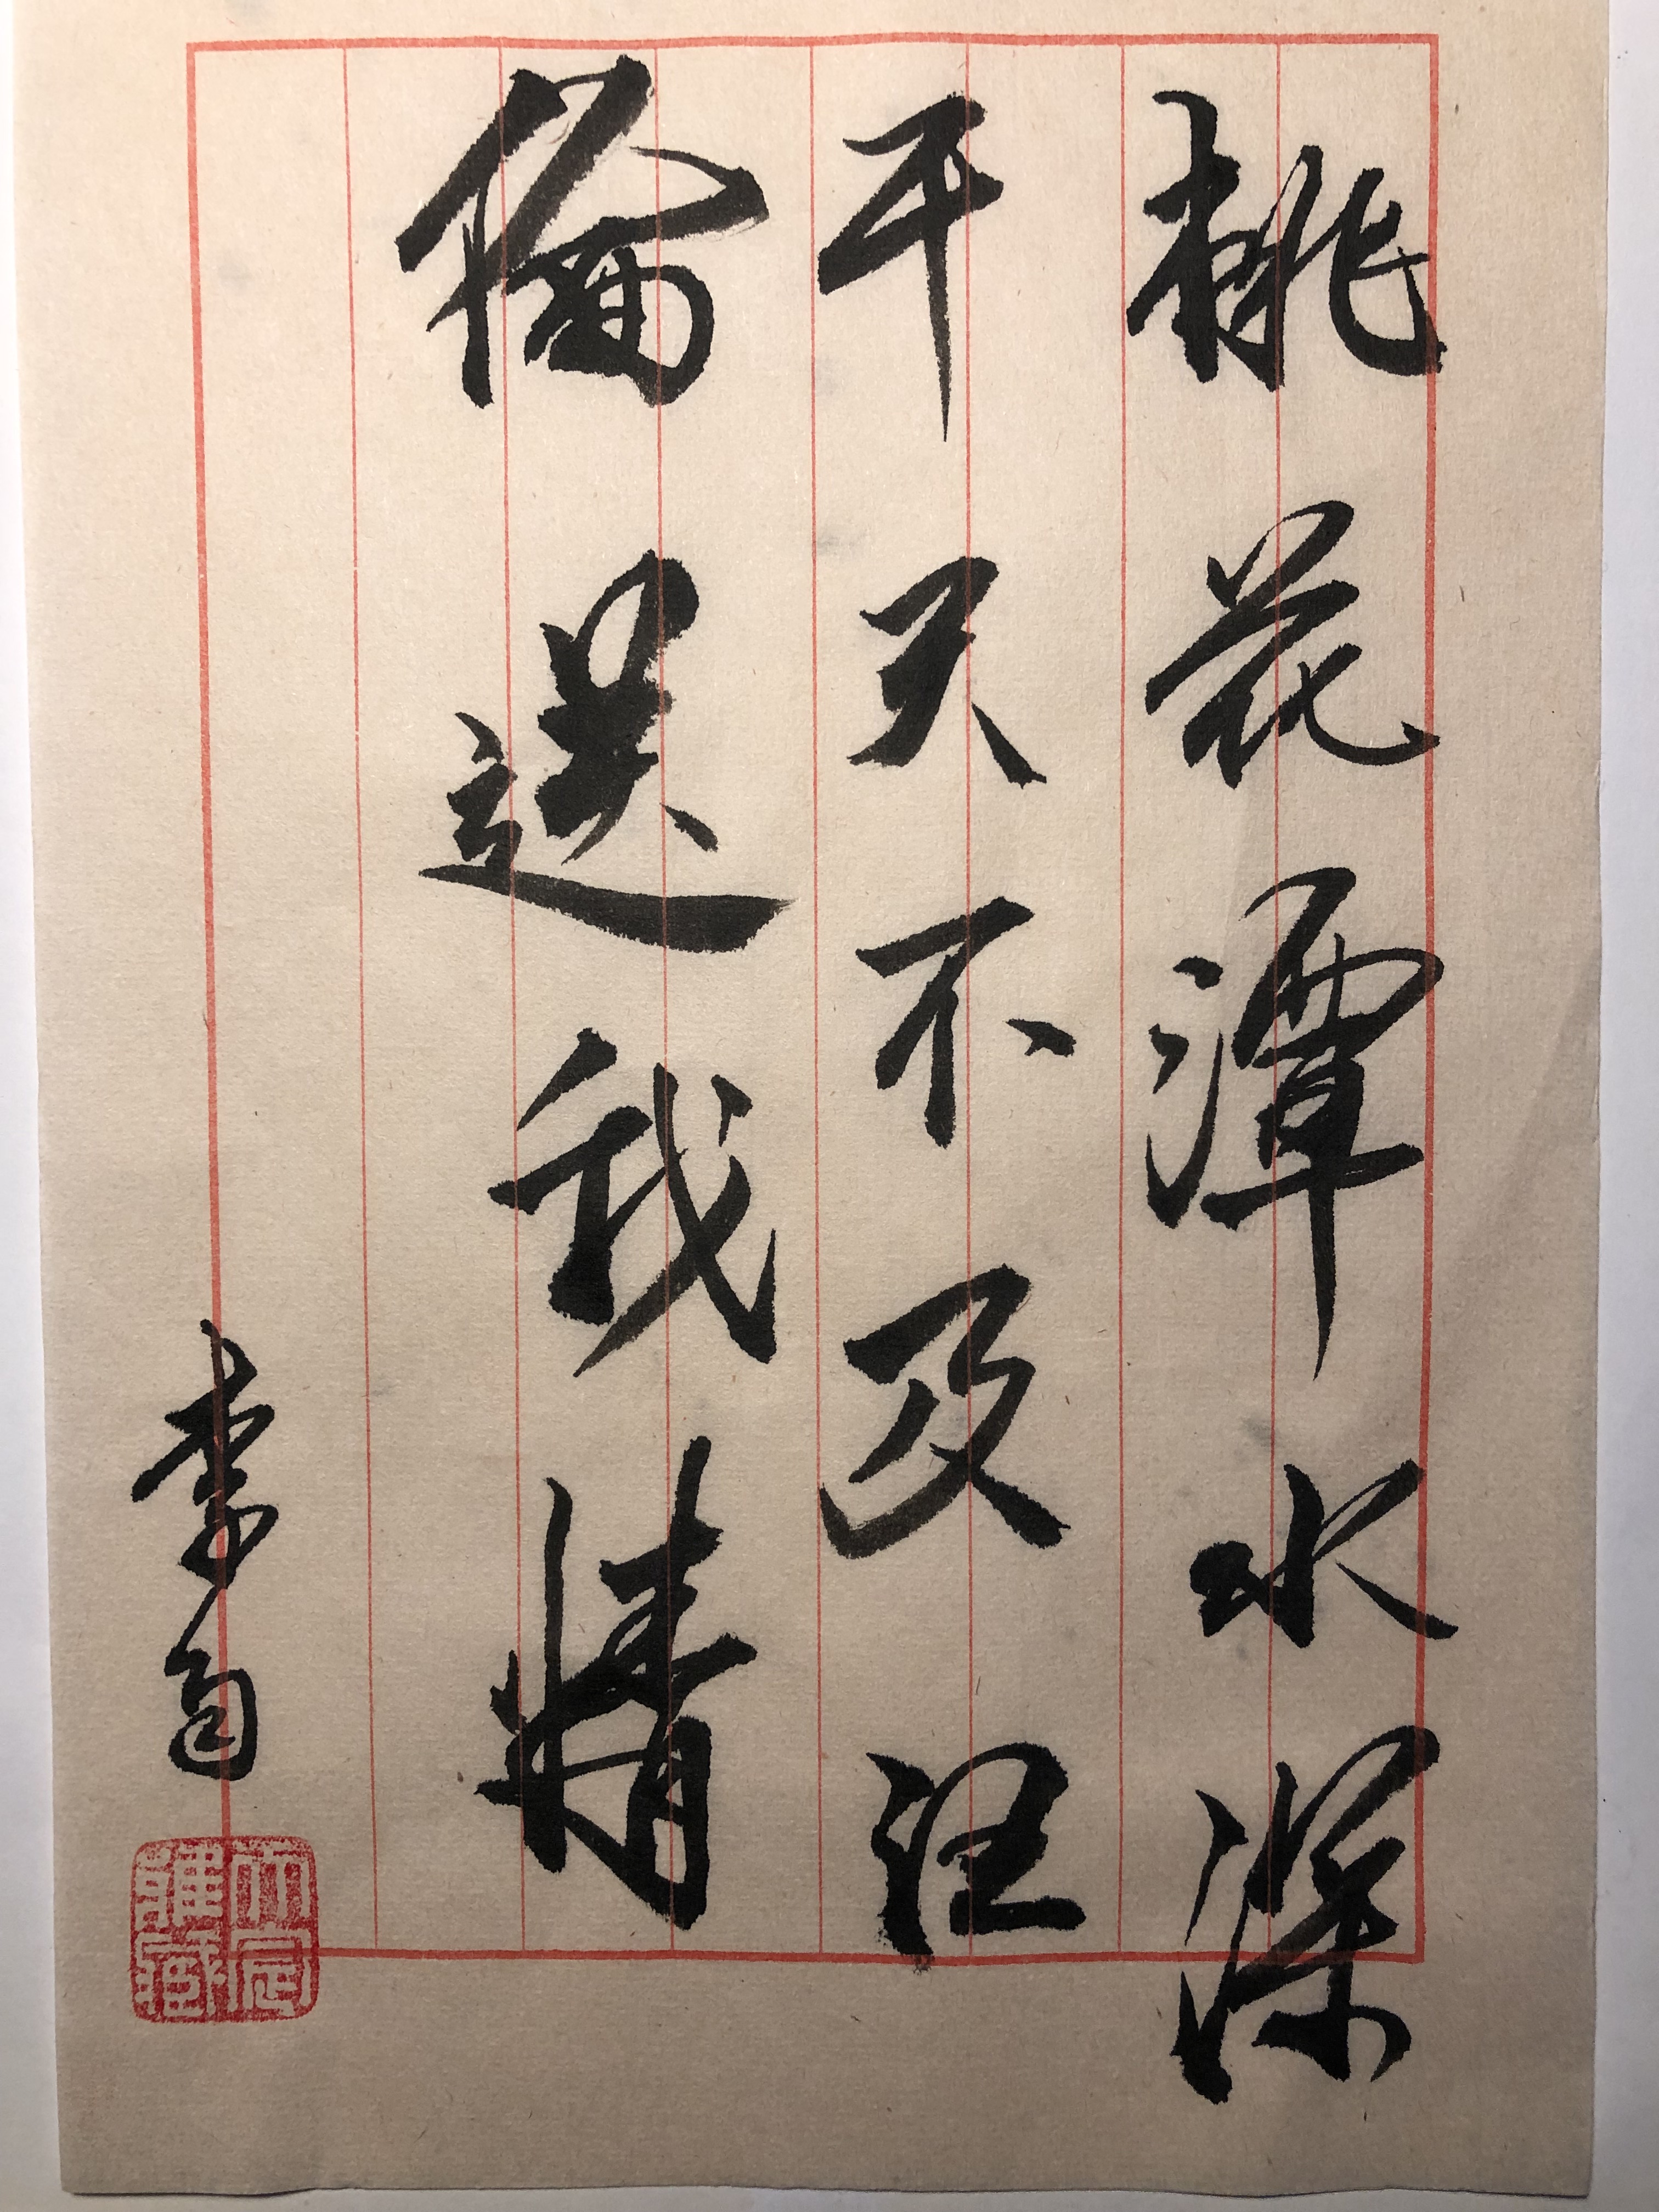 桃花潭水深
千尺不及汪
倫送我情
李白